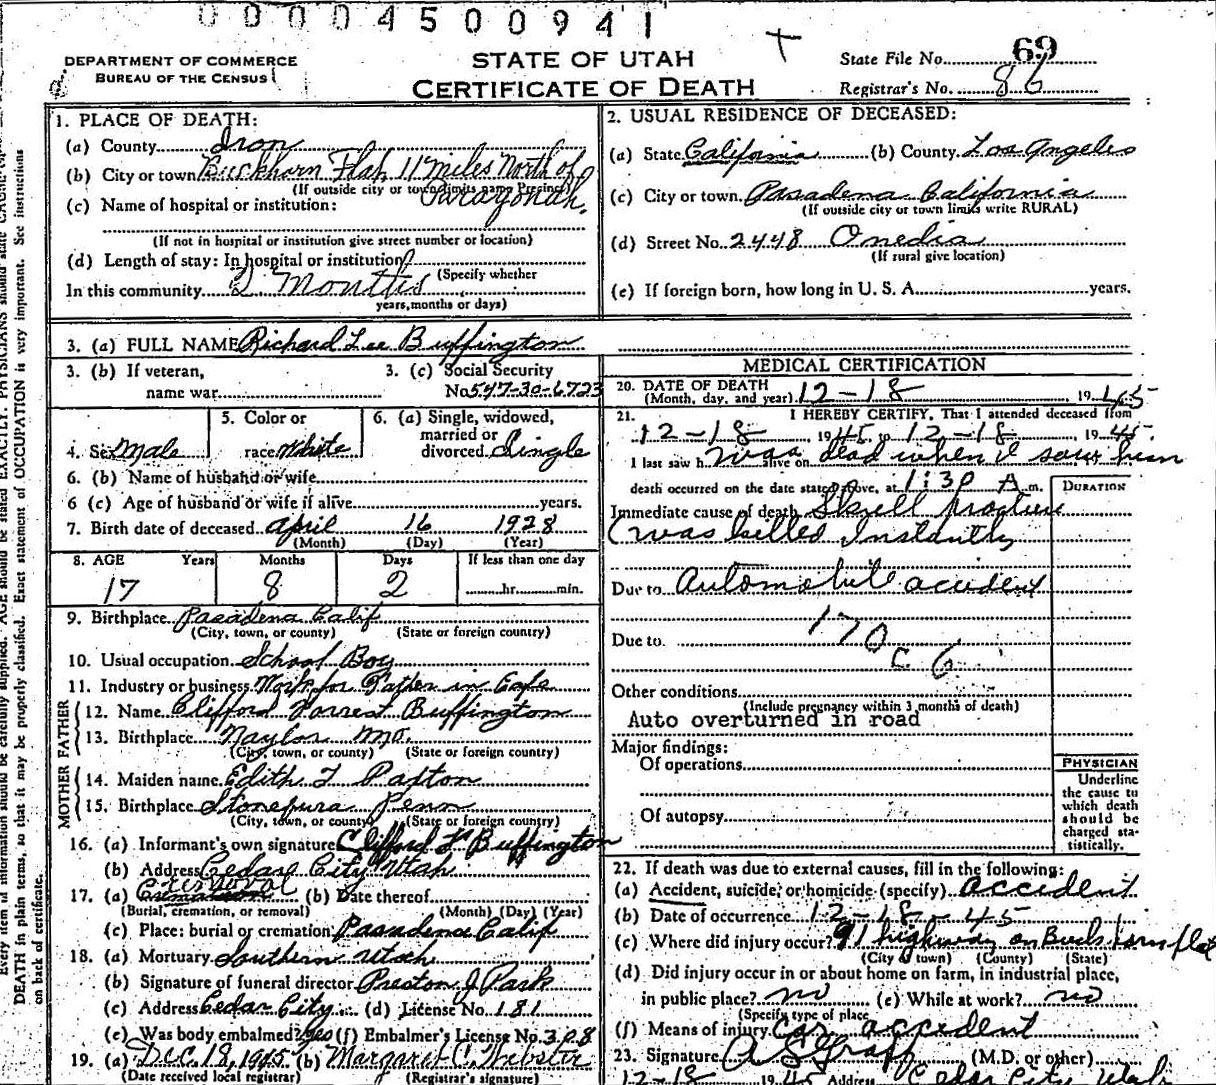 0 0 0 0 4 5 0 0 9 4 1
DEPARTMENT OF COMMERCE
BUREAU OF THE CENSUS
STATE OF UTAH
CERTIFICATE OF DEATH
State File No. 69
Registrar's No. 86
1. PLACE OF DEATH:
(a) County Iron
(b) City or town Buckhorn Flat 11 miles North of
(If outside city or town limits name Precinct)
Paragonah.
(c) Name of hospital or institution:
(If not in hospital or institution give street number or location)
(d) Length of stay: In hospital or institution
(Specify whether
In this community 2 Months
years, months or days)
2. USUAL RESIDENCE OF DECEASED:
(a) State California (b) County Los Angeles
(c) City or town Pasadena California
(If outside city or town limits write RURAL)
(d) Street No. 2448 Onedia
(If rural give location)
(e) If foreign born, how long in U. S. A. years.
3. (a) FULL NAME Richard Lee Buffington
3. (b) If veteran,
name war
3. (c) Social Security
No. 547-30-6723
4. Sex Male
5. Color or
race White
6. (a) Single, widowed,
married or
divorced Single
6. (b) Name of husband or wife
6 (c) Age of husband or wife if alive years.
7. Birth date of deceased April 16 1928
(Month) (Day) (Year)
8. AGE Years Months Days If less than one day
17 8 2 hr. min.
9. Birthplace Pasadena Calif
(City, town, or county) (State or foreign country)
10. Usual occupation School Boy
11. Industry or business Work for Father in Cafe
FATHER
12. Name Clifford Forrest Buffington
13. Birthplace Naylor Mo.
(City, town, or county) (State or foreign country)
MOTHER
14. Maiden name Edith L Paxton
15. Birthplace Penn
(City, town, or county) (State or foreign country)
16. (a) Informant's own signature Clifford F Buffington
(b) Address Cedar City Utah
17. (a) Cremation Removal (b) Date thereof
(Burial, cremation, or removal) (Month) (Day) (Year)
(c) Place: burial or cremation Pasadena Calif
18. (a) Mortuary Southern Utah
(b) Signature of funeral director Preston J Park
(c) Address Cedar City (d) License No. 181
(e) Was body embalmed? Yes (f) Embalmer's License No. 308
19. (a) Dec. 18, 1945 (b) Margaret C. Webster
(Date received local registrar) (Registrar's signature)
MEDICAL CERTIFICATION
20. DATE OF DEATH
(Month, day, and year) 12-18 1945
21. I HEREBY CERTIFY, That I attended deceased from
12-18 1945 to 12-18 1945.
I last saw h was alive on dead when I saw him
death occurred on the date stated above, at 1:30 A m.
DURATION
Immediate cause of death Skull fracture
(was killed Instantly
Due to Automobile accident
Due to 170
c 6
Other conditions
(Include pregnancy within 3 months of death)
Auto overturned in road
Major findings:
Of operations
Of autopsy
PHYSICIAN
Underline
the cause to
which death
should be
charged sta-
tistically.
22. If death was due to external causes, fill in the following:
(a) Accident, suicide, or homicide (specify) accident
(b) Date of occurrence 12-18-45
(c) Where did injury occur? 91 highway on Buckhorn flat
(City or town) (County) (State)
(d) Did injury occur in or about home on farm, in industrial place,
in public place? no (e) While at work? no
(Specify type of place
(f) Means of injury Car accident
23. Signature (M.D. or other)
12-18 1945 Address Cedar City Utah
Every item of information should be carefully supplied. AGE should be stated EXACTLY. PHYSICIANS should state CAUSE
DEATH in plain terms, so that it may be properly classified. Exact statement of OCCUPATION is very important. See instructions
on back of certificate.